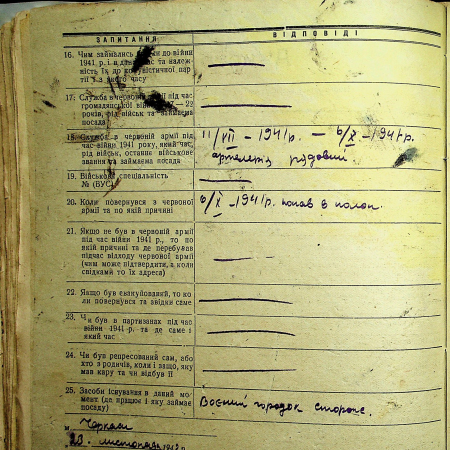 ЗАПИТАННЯ ВІДПОВІДІ
16. Чим займались до війни
1941 р. і в час та належ-
ність їх до комуністичної пар-
тії з якого часу
17. Служба в червоній армії під час
громадянської війни — 22
років, рід військ та займана
посада
18. Служба в червоній армії під
час війни 1941 року, який час,
рід військ, останнє військове
звання та займаема посада
11/VII – 1941 р. – 6/X – 1941 р.
рядовий
19. Військова спеціяльність
№ (ВУС)
20. Коли повернувся з червоної
армії та по якій причині
6/X – 1941 р. попав в полон.
21. Якщо не був в червоній армії
під час війни 1941 р., то по
якій причині та де перебував
підчас відходу червоної армії
(чим може підтвердити, а коли
свідками то їх адреса)
22. Якщо був евакуйований, то ко-
ли повернувся та звідки саме
23. Чи був в партизанах під час
війни 1941 р. та де саме і
який час
24. Чи був репресований сам, або
хто з родичів, коли і защо, яку
мав кару та чи відбув її
25. Засоби існування в даний мо-
мент (де працює і яку займає
посаду)
Воєний городок сторож.
м. Черкаси
23. листопада 194